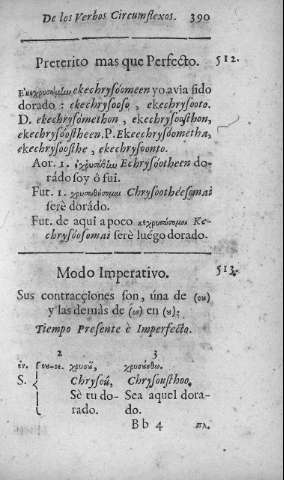 De los Verbos Circunflexos. 390
Preterito mas que Perfecto. 512.
ekechrysóomeen yo avia sido
dorado: ekechrysooso, ekechrysooto.
D. ekechrysómethon, ekechrysousthon,
ekechrysóostheen. P. Ekechrysóometha,
ekechrysoosthe, ekechrysoonto.
Aor. 1. Echrysóotheen do-
rádo soy ó fui.
Fut. 1. Chrysoothéesomai
serè dorádo.
Fut. de aqui a poco Ke-
chrysóosomai serè luégo dorado.
Modo Imperativo. 513.
Sus contracçiones son, úna de (ου)
y las demás de (ω) en (ȣ);
Tiempo Presente è Imperfecto.
2 3
χρυσοῦ, χρυσούσθω,
S. Chrysoú, Chrysousthoo,
Sè tu do- Sea aquel dora-
rado. do.
B b 4 πλ.